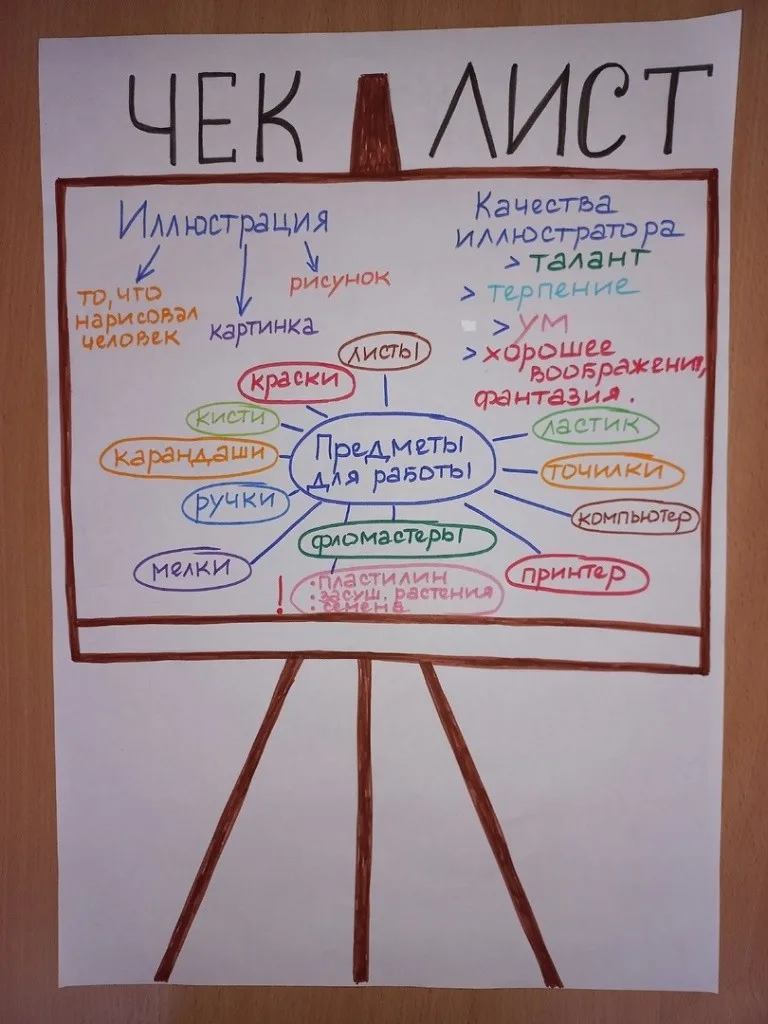 ЧЕК ЛИСТ
Иллюстрация
то, что
нарисовал
человек
картинка
рисунок
Качества
иллюстратора
> талант
> терпение
> ум
> хорошее
воображения,
фантазия.
Предметы
для работы
листы
краски
кисти
карандаши
ручки
мелки
фломастеры
! • пластилин
• засуш. растения
• семена
ластик
точилки
компьютер
принтер